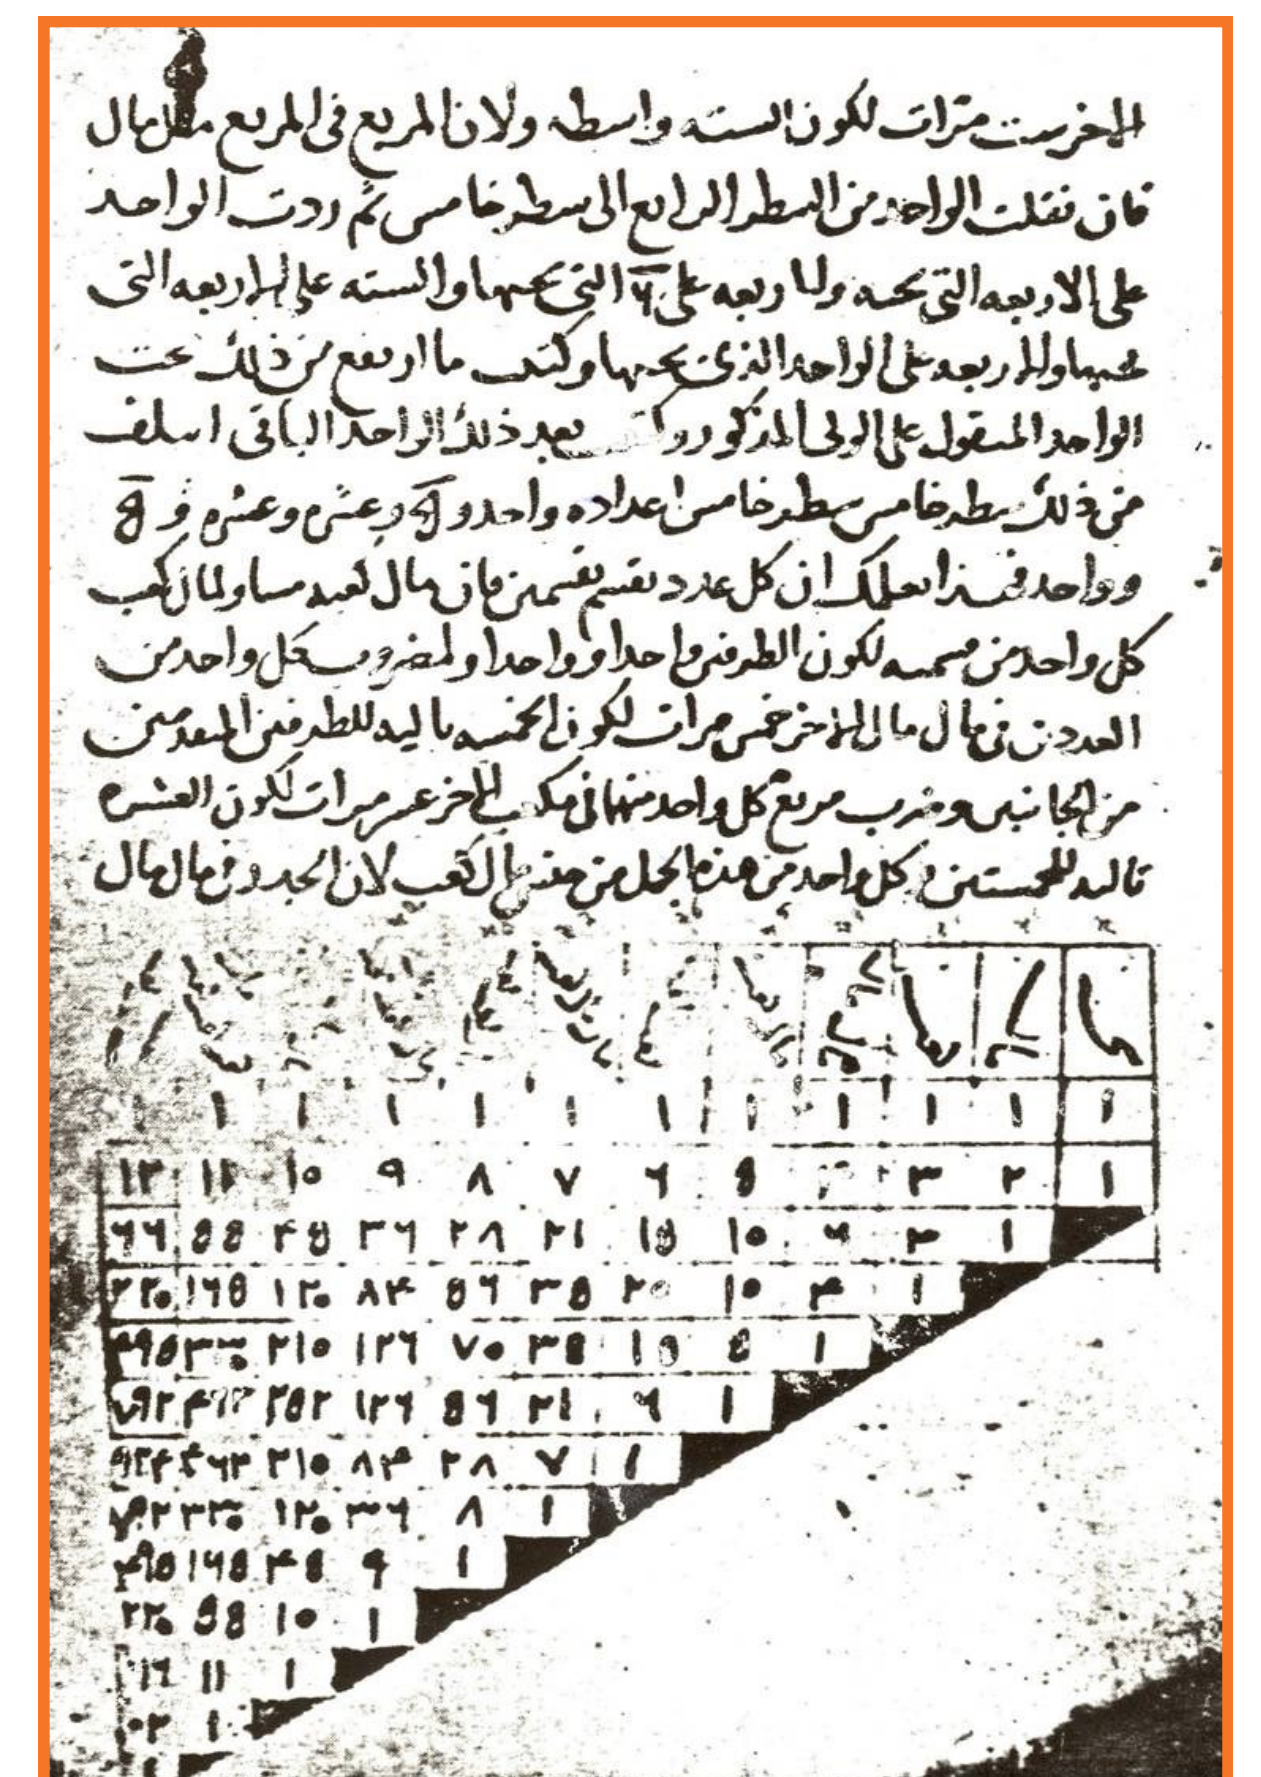 الاخر ست مرات لكون السته واسطه ولان المربع في المربع مال
فان نقلت الواحد من السطر الرابع الى سطر خامس ثم زدت الواحد
على الاربعه التي تحته والاربعه على ٦ التي تحتها والسته على الاربعه التي
تحتها والاربعه على الواحد الذي تحتها وكتبت ما ارتفع من ذلك تحت
الواحد المنقول على الولى المذكور وكتبت بعد ذلك الواحد الباقي ائتلف
من ذلك سطر خامس سطر خامس اعداده واحد و ٥ وعشره وعشره و ٥
وواحد فهذا يعلمك ان كل عدد يقسم بقسمين فان مال كعبه مساو لمال كعب
كل واحد من قسميه لكون الطرفين واحدا وواحدا ولمضروب كل واحد من
العددين في مال مال الاخر خمس مرات لكون الخمسه تاليه للطرفين المتقدمين
من الجانبين وضرب مربع كل واحد منهما في مكعب الاخر عشر مرات لكون العشره
تاليه للخمستين وكل واحد من هذه الجمل من جنس مال كعب لان الجذر في مال مال
مال كعب
١ ١ ١ ١ ١ ١ ١ ١ ١ ١ ١
١ ٢ ٣ ٥ ٦ ٧ ٨ ٩ ١٠ ١١ ١٢
١ ٣ ٦ ١٠ ١٥ ٢١ ٢٨ ٣٦ ٤٥ ٥٥ ٦٦
١ ٤ ١٠ ٢٠ ٣٥ ٥٦ ٨٤ ١٢٠ ١٦٥ ٢٢٠
١ ٥ ١٥ ٣٥ ٧٠ ١٢٦ ٢١٠ ٣٣٠ ٤٩٥
١ ٦ ٢١ ٥٦ ١٢٦ ٢٥٢ ٤٦٢ ٧٩٢
١ ٧ ٢٨ ٨٤ ٢١٠ ٤٦٢ ٩٢٤
١ ٨ ٣٦ ١٢٠ ٣٣٠ ٧٩٢
١ ٩ ٤٥ ١٦٥ ٤٩٥
١ ١٠ ٥٥ ٢٢٠
١ ١١
١